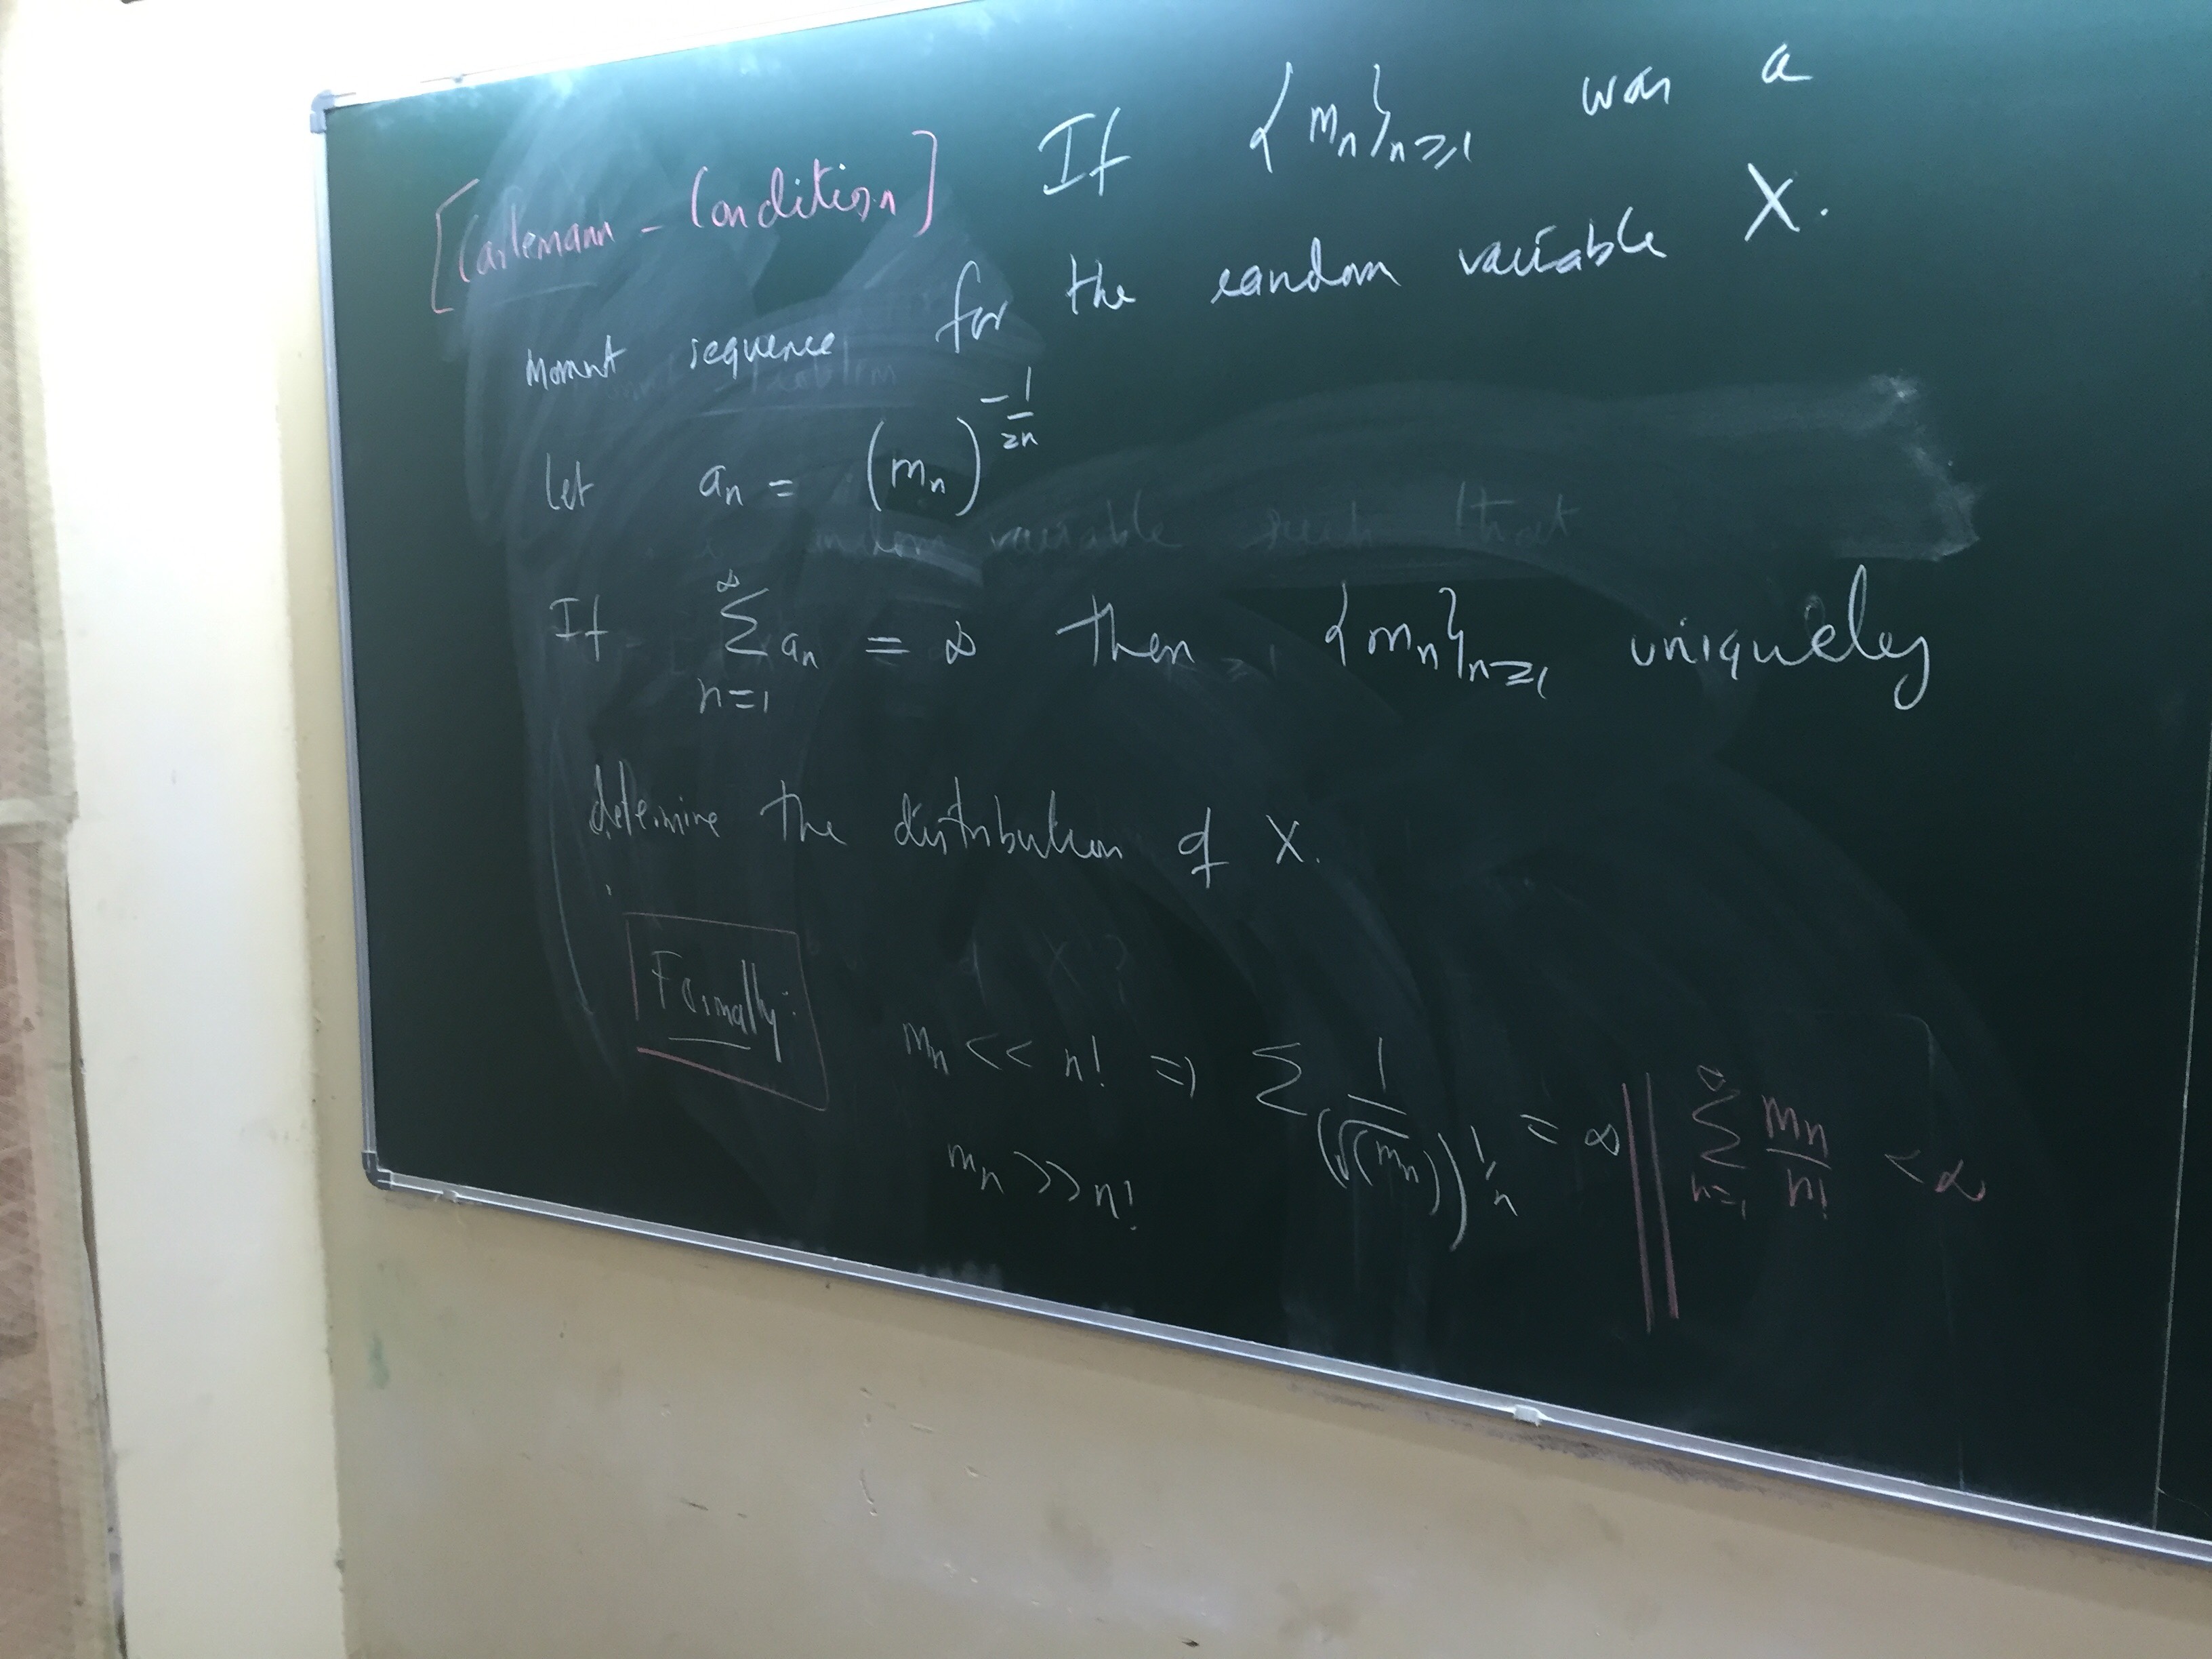 [Carlemann - Condition] If {mn}n≥1 was a
moment sequence for the random variable X.
let an = (mn)^(-1/2n)
If ∑_{n=1}^{∞} an = ∞ then {mn}n≥1 uniquely
determine the distribution of X.
Formally: mn << n! => ∑ 1/(√(mn))^(1/n) = ∞ || ∑_{n=1}^{∞} mn/n! < ∞
mn >> n!